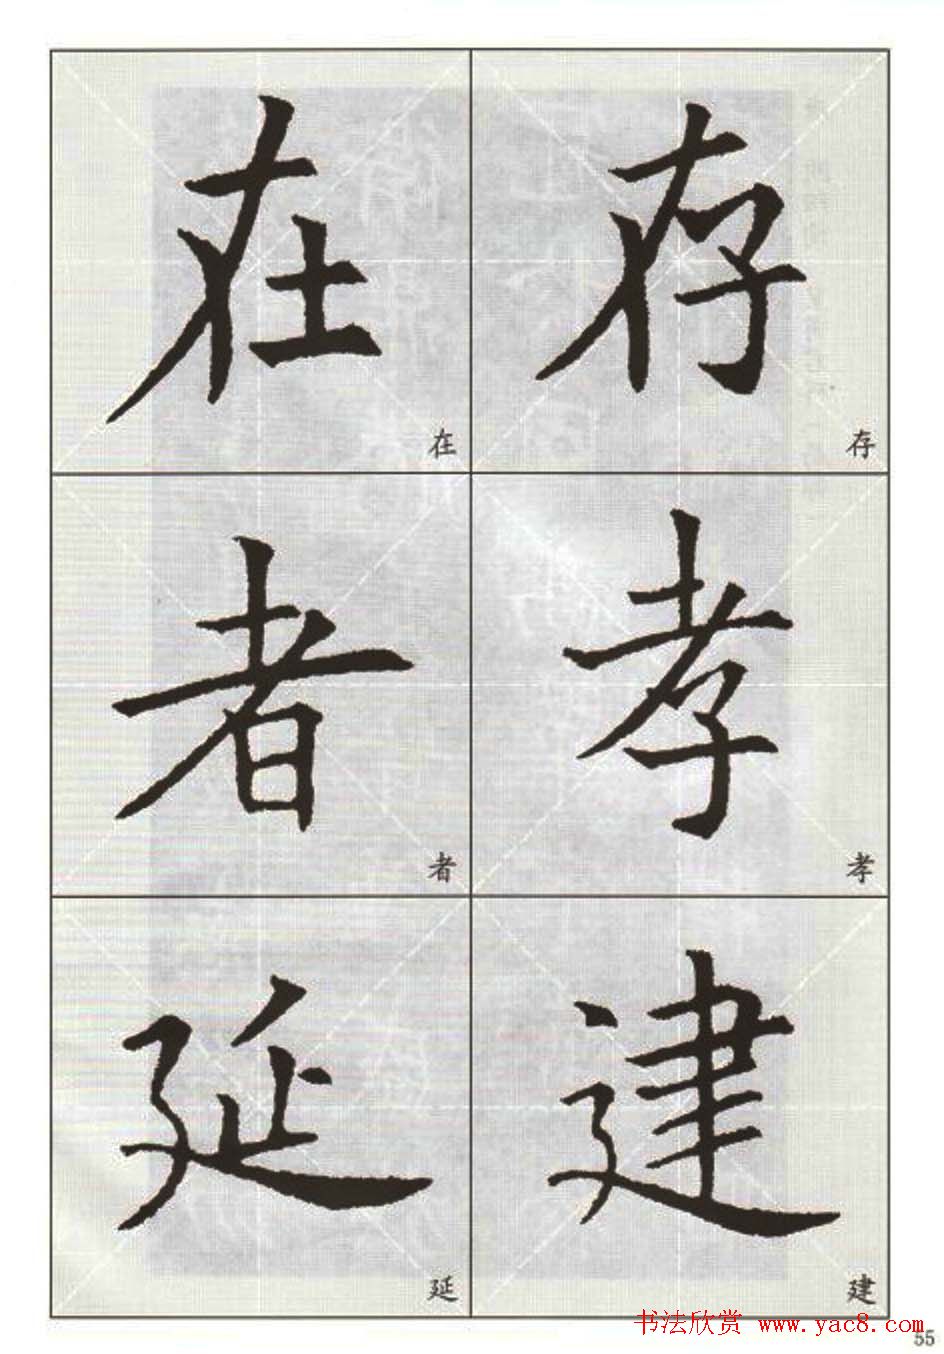 在 存
在 存
者 孝
者 孝
延 建
延 建
书法欣赏 www.yac8.com
55